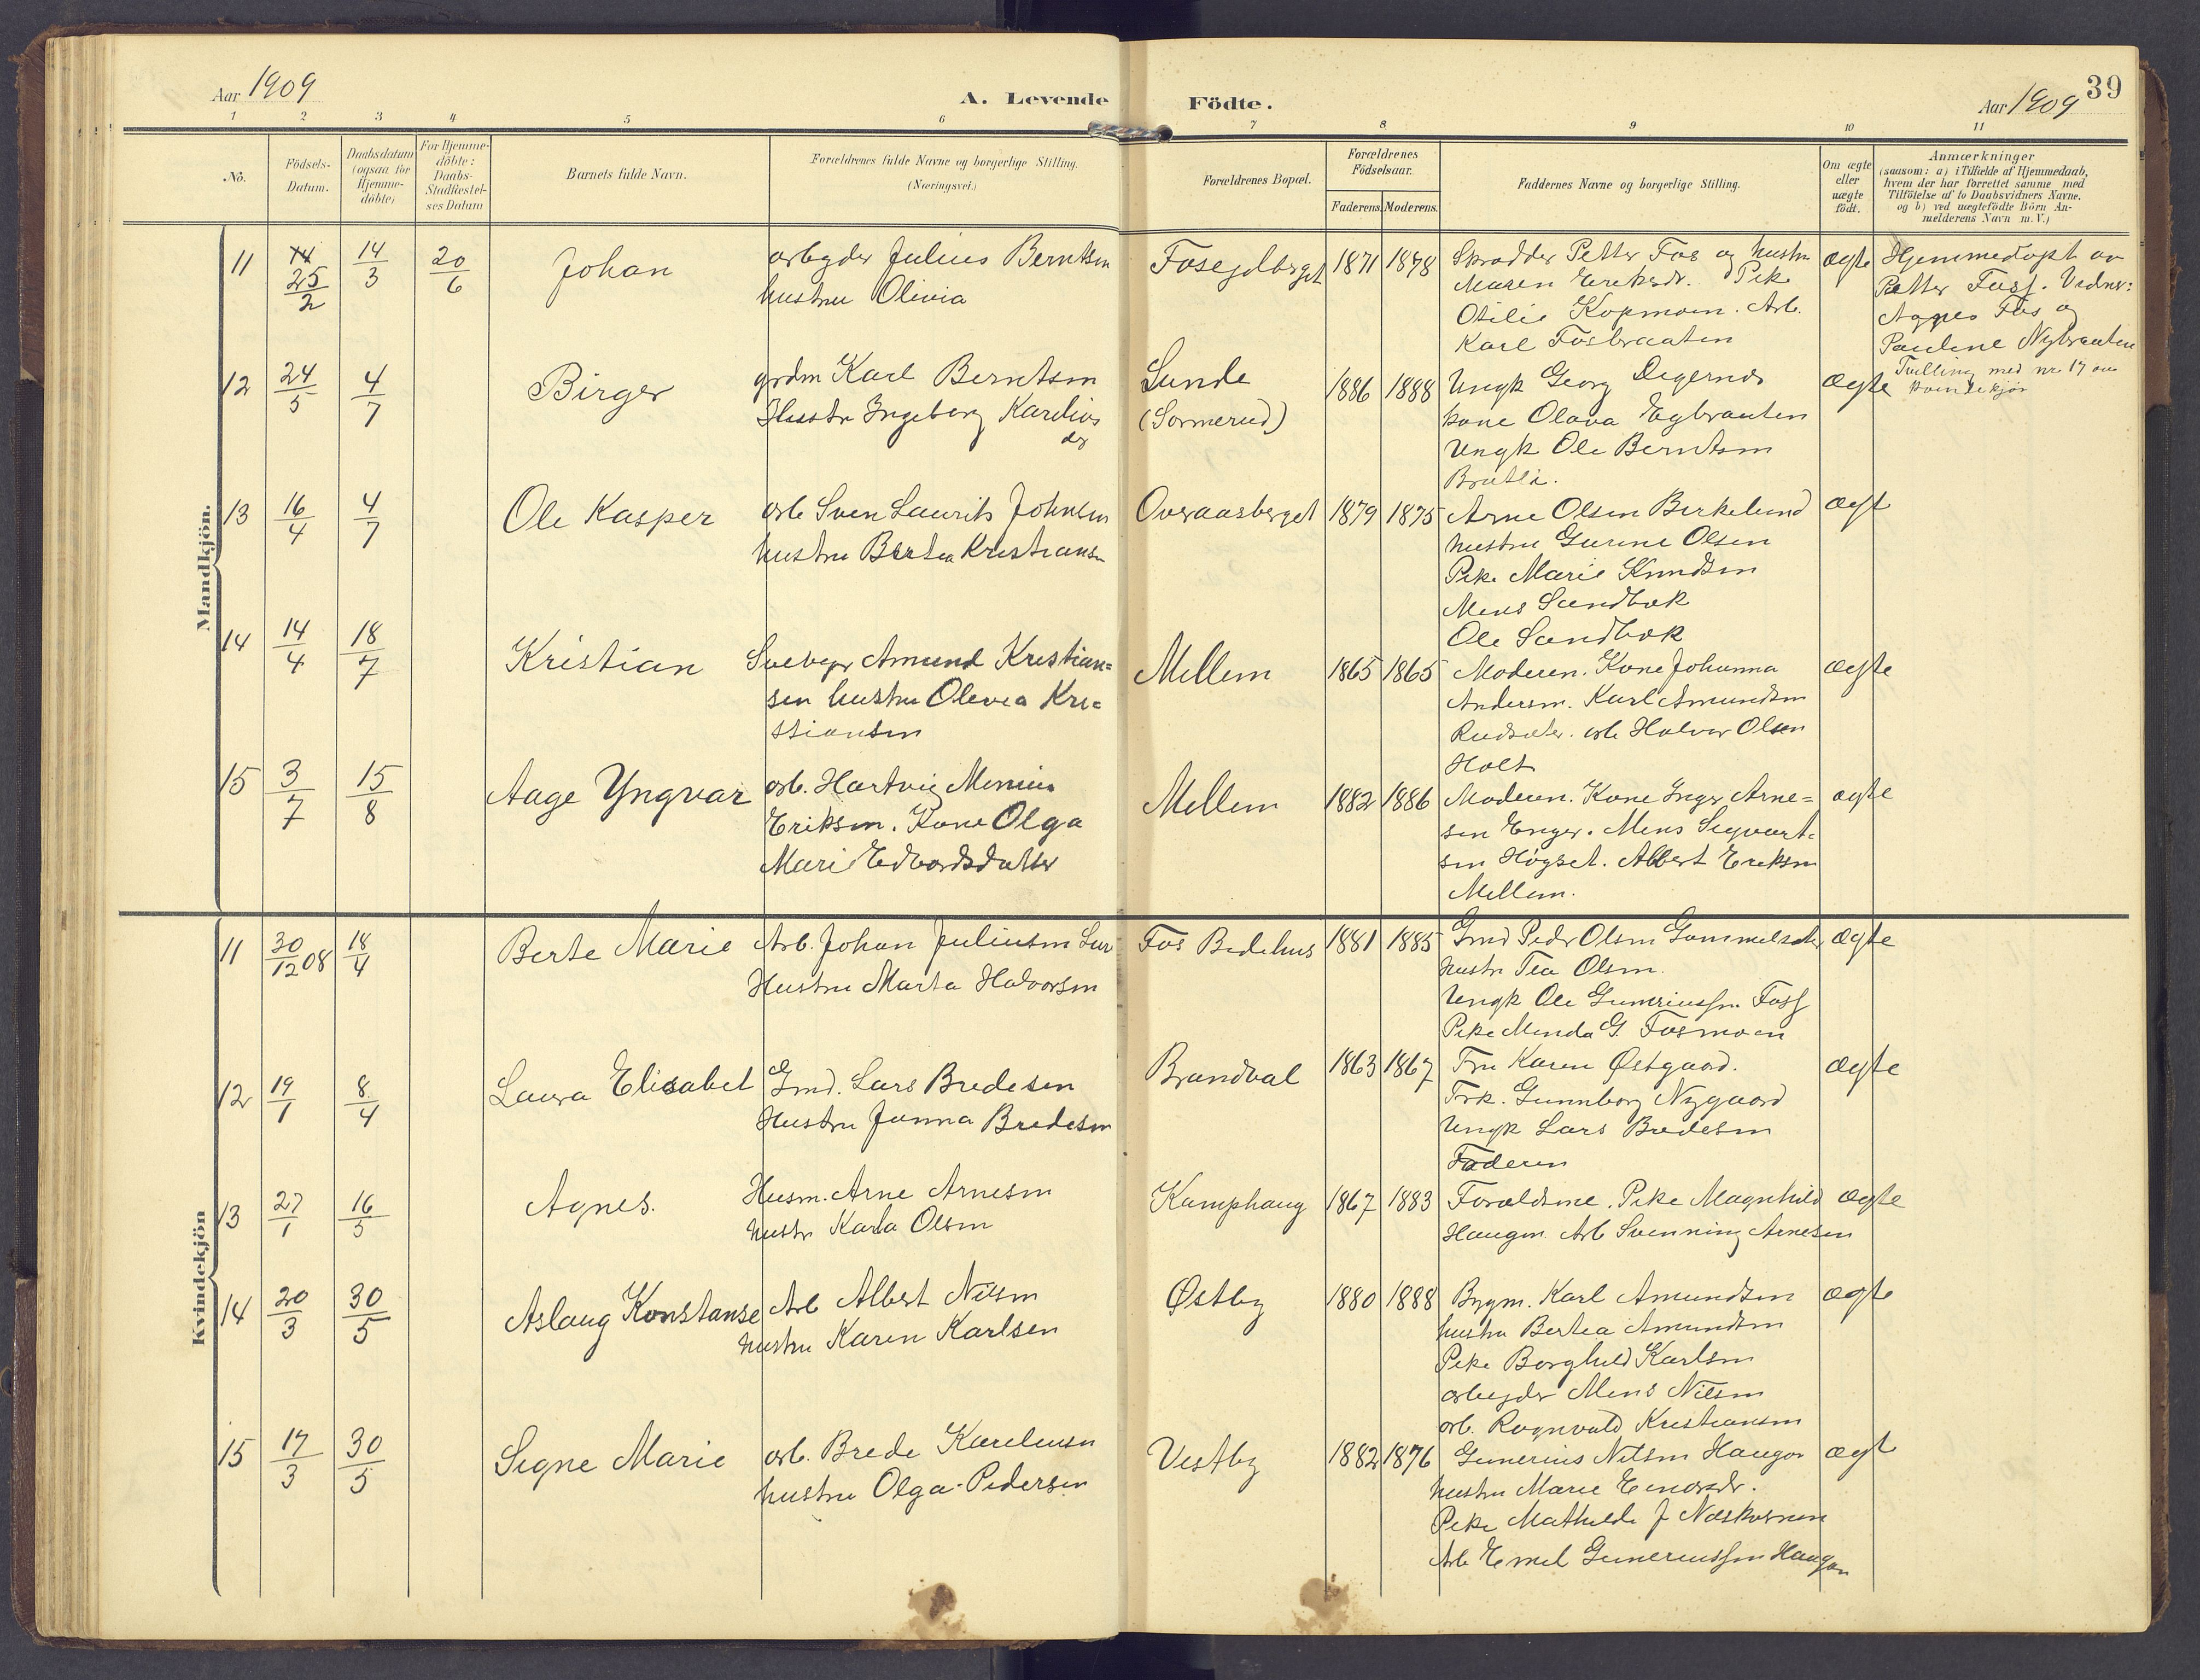 Aar 1909
A. Levende Födte.
Aar 1909
39
1 2 3 4 5 6 7 8 9 10 11
No.
Födsels-Datum.
Daabsdatum (ogsaa for Hjemme-döbte)
For Hjemme-döbte: Daabs-Stadfæstel-ses Datum
Barnets fulde Navn.
Forældrenes fulde Navne og borgerlige Stilling. (Næringsvei.)
Forældrenes Bopæl.
Forældrenes Födselsaar.
Faderens. Moderens.
Faddernes Navne og borgerlige Stilling.
Om ægte eller uægte födt.
Anmærkninger
(saasom: a) i Tilfælde af Hjemmedaab,
hvem der har forrettet samme med
Tilföielse af to Daabsvidners Navne.
og b) ved uægtefödte Börn An-
melderens Navn m. V.)
Mandkjön.
11 25/2 14/3 20/6 Johan
arbeyder Julius Berntsen
hustru Olivia
1871 1878
Skrædder Petter Fos og hustru
Maren Eriksdr. Pike
Otilie Kopmoen. Arb.
Karl Fosbraaten
ægte
Hjemmedøpt av
Petter Foss. Vidner:
Agnes Fos og
Pauline Nybraaten
12 24/5 4/7 Birger
grdm Karl Berntsen
Hustr Ingeborg Karelius
dr
Lunde
(Sormerud)
1886 1888
Ungk Georg Degernes
kone Olava Egbraaten
Ungk Ole Berntsen
Bratli.
ægte
Tvilling med nr 17 av
kvindekjøn
13 16/4 4/7 Ole Kasper
arb Sven Laurits Johnsen
hustru Bertea Kristiansn
Overaasberget
1879 1875
Arne Olsen Birkelund
hustru Gurine Olsen
Pike Marie Knudsen
Mens Sandbæk
Ole Sandbæk
ægt
14 14/4 18/7 Kristian
Amund Kristian=
sen hustru Olevia Kri=
stiansen
Mellem
1865 1865
Moderen. Kone Johanna
Andersen. Karl Amundsen
Rudsæter. arb Halvor Olsen
Holt
ægte
15 3/7 15/8 Aage Yngvar
arb. Hartvig Menius
Eriksen. Kone Olga
Mari Edvardsdatter
Mellem
1882 1886
Moderen. Kone Inger Arne=
sen Enger. Mens Sigvart=
sen Høgset. Albert Eriksen
Mellem.
ægte
Kvindekjön
11 30/12 08 18/4 Berte Marie
Arb. Johan Juliusen
Hustru Marta Halvorsen
Fos Bedehus
1881 1885
Grmd Peder Olsen Gammelsæter
hustr Tea Olsen.
Ungk Ole Guneriussn. Foss
Pike Minda G. Fosmoen
ægte
12 19/1 8/4 Laura Elisabet
Grmd. Lars Bredesen
Hustru Janna Bredesen
Brandval
1863 1867
Fru Karen Østgaard.
Frk. Gunnborg Nygaard
Ungk Lars Bredesen
Faderen
ægte
13 27/1 16/5 Agnes.
Husm. Arne Arnesen
hustr Karla Olsen
Kamphaug
1867 1883
Forældrene. Pike Magnhild
Haugen. Arb Svenning Arnesen
ægte
14 20/3 30/5 Aslaug Konstanse
Arb Albert Nilsen
hustru Karen Karlsen
Østby
1880 1888
Bygm. Karl Amundsen
hustru Bertea Amundsen
Pike Borghild Karlsen
arbeyder Mens Nilsen
arb. Ragnvald Kristiansen
ægte
15 17/3 30/5 Signe Marie
arb. Brede Kareliusn
hustru Olga Pedersen
Vestby
1882 1876
Gunerius Nilsen Haugen
hustru Marie Einarsdr.
Pike Mathilde J
Arb Emil Gunerriussen Haugen
ægt